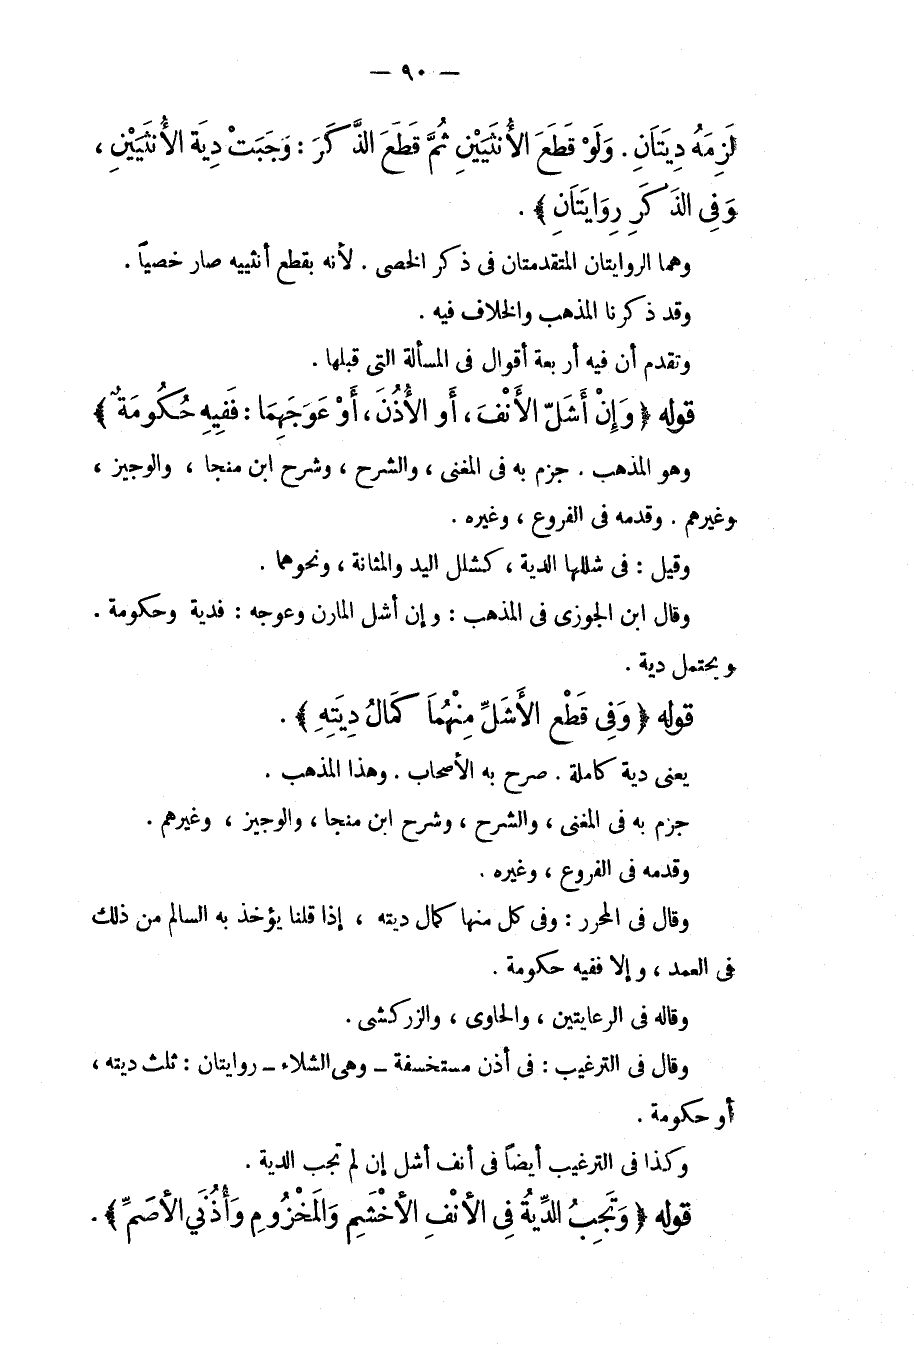 — ٩٠ —
لَزِمَهُ دِيَتَانِ . وَلَوْ قَطَعَ الأُنثَيَيْنِ ثُمَّ قَطَعَ الذَّكَرَ : وَجَبَتْ دِيَة الأُنثَيَيْنِ ،
وَفِى الذَكَرِ رِوَايَتَانِ ﴾ .
وهما الروايتان المتقدمتان فى ذكر الخصى . لأنه بقطع أنثييه صار خصياً .
وقد ذكرنا المذهب والخلاف فيه .
وتقدم أن فيه أربعة أقوال فى المسألة التى قبلها .
قوله ﴿ وَإِنْ أَشَلّ الأَنْفَ ، أَو الأُذُنَ ، أَوْ عَوَجَهِمَا : فَفِيهِ حُكُومَةٌ ﴾
وهو المذهب . جزم به فى المغنى ، والشرح ، وشرح ابن منجا ، والوجيز ،
وغيرهم . وقدمه فى الفروع ، وغيره .
وقيل : فى شللها الدية ، كشلل اليد والمثانة ، ونحوهما .
وقال ابن الجوزى فى المذهب : وإن أشل المارن وعوجه : فدية وحكومة .
ويحتمل دية .
قوله ﴿ وَفِى قَطْعِ الأَشَلِّ مِنْهُمَا كَمَالُ دِيَتِهِ ﴾ .
يعنى دية كاملة . صرح به الأصحاب . وهذا المذهب .
جزم به فى المغنى ، والشرح ، وشرح ابن منجا ، والوجيز ، وغيرهم .
وقدمه فى الفروع ، وغيره .
وقال فى المحرر : وفى كل منها كمال ديته ، إذا قلنا يؤخذ به السالم من ذلك
فى العمد ، وإلا ففيه حكومة .
وقاله فى الرعايتين ، والحاوى ، والزركشى .
وقال فى الترغيب : فى أذن مستخسفة ــ وهى الشلاء ــ روايتان : ثلث ديته ،
أو حكومة .
وكذا فى الترغيب أيضاً فى أنف أشل إن لم تجب الدية .
قوله ﴿ وَتَجِبُ الدِّيةُ فِى الأَنْفِ الأَخْشَمِ وَالمَخْزُومِ وَأُذُنَي الأَصَمِّ ﴾ .